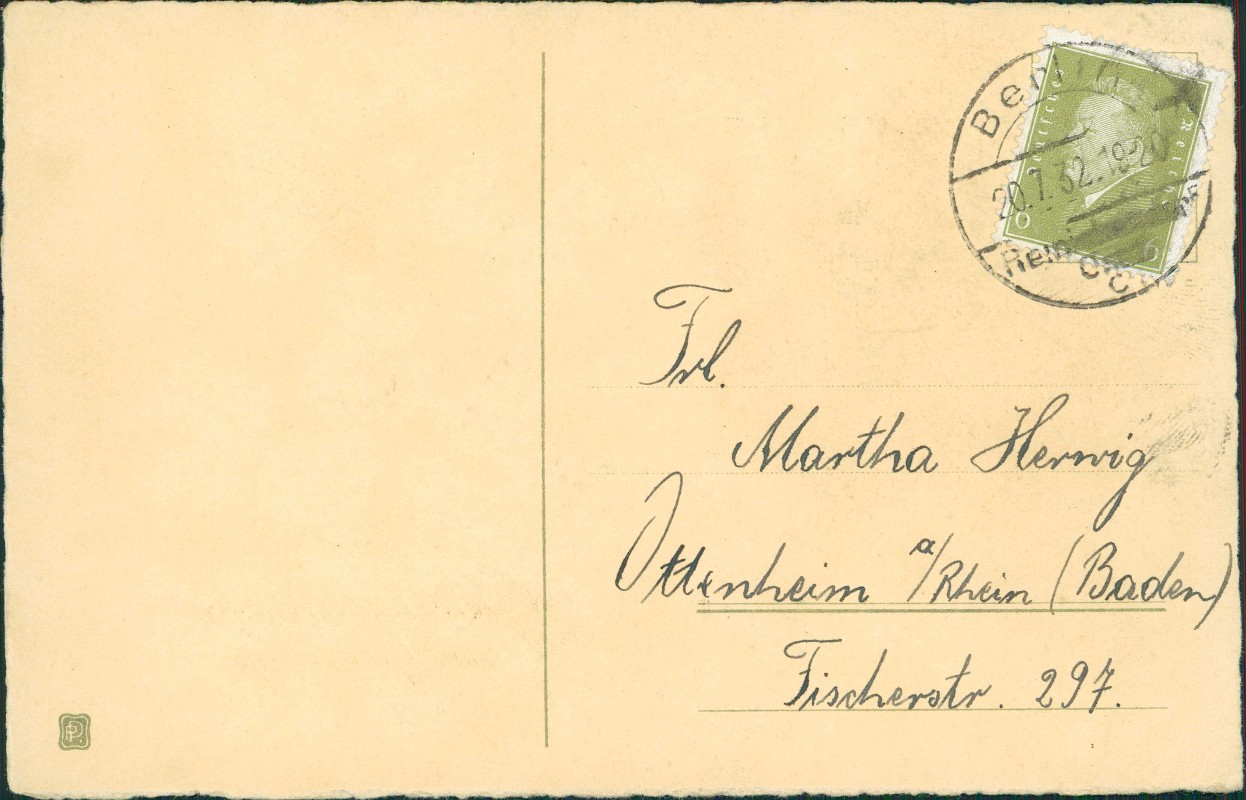 Berlin
20.7.32.18-20
Deutsches Reich
6 6
Frl.
Martha Herwig
Ottenheim a/Rhein (Baden)
Fischerstr. 297.